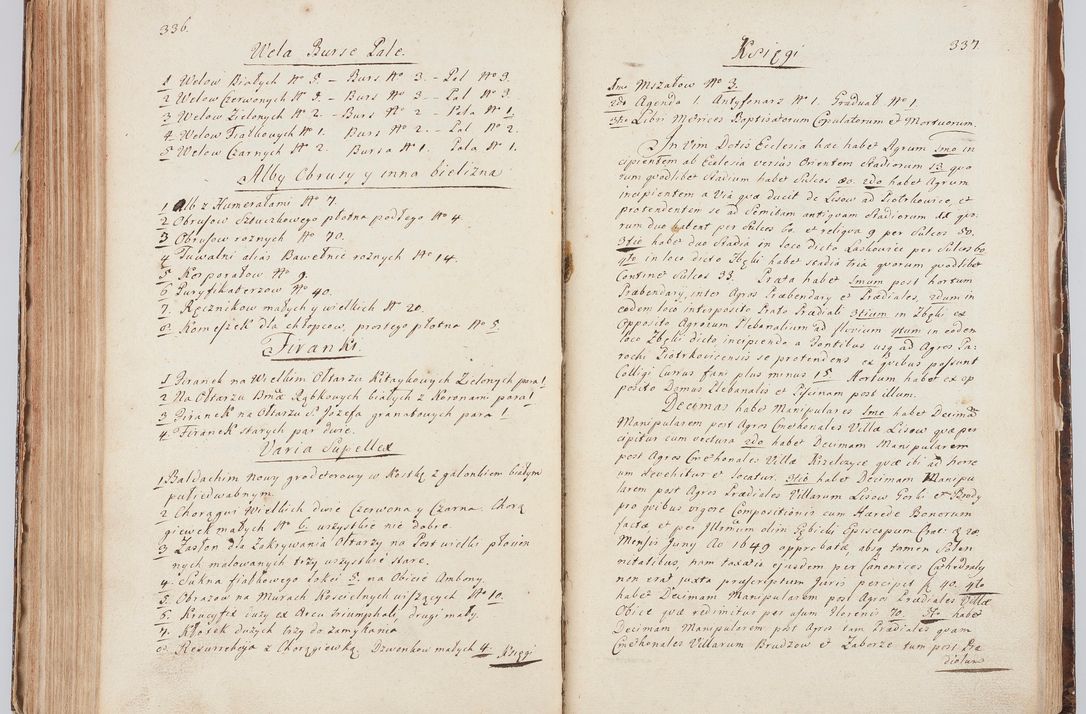 336.
Wela Burse Pale.
1 Welow Białych Nº 5. – Burs Nº 3. – Pal Nº 3.
2 Welow Czerwonych Nº 3. – Burs Nº 3. – Pal Nº 3.
3 Welow Zielonych Nº 2. – Burs Nº 2. – Pala Nº 1.
4. Welow Fiałkowych Nº 1. Burs Nº 2. – Pal Nº 2.
5 Welow Czarnych Nº 2. Bursa Nº 1. Pala Nº 1.
Alby Obrusy y inna bielizna
1 Alb z Humerałami Nº 7.
2 Obrusow Sztuczkowego płotna podłego Nº 4.
3 Obrusow roznych Nº 70.
4 Tuwalni alias Bawełnic roznych Nº 14.
5 Korporałow Nº 9.
6 Puryfikaterzow Nº 40.
7. Ręcznikow małych y wielkich Nº 20.
8 Komeżek dla chłopcow, prostego płotna Nº 5.
Firanki
1 Firanek na Wielkim Ołtarzu Kitaykowych Zielonych para 1
2 Na Ołtarzu Bmæ Rąbkowych białych z Koronami para 1
3 Firanek na Ołtarzu S. Jozefa granatowych para 1
4. Firanek starych par dwie.
Varia Supellex
1 Baldachim nowy grodetorowy w Kostkę z galonkiem białym
pułiedwabnym.
2 Chorągwi Wielkich dwie Czerwona y Czarna. Chorą
giewek małych Nº 6. wszystkie nie dobre.
3 Zasłon dla Zakrywania Ołtarzy na Post wielki płocien
nych malowanych trzy wszystkie stare.
4. Sukna fiałkowego łokci 5. na Obicie Ambony.
5. Obrazow na Murach Koscielnych wiszących Nº 10.
6. Krucyfix duży ex Arcu triumphali, drugi mały.
7. Kłotek dużych trzy do zamykania
8 Resurrekcja z Chorągiewką. Dzwonkow małych 4. Księgi
337.
Księgi
1mo Mszałow Nº 3.
2do Agenda 1. Antyfonarz Nº 1. Graduał Nº 1.
3tio Libri Metrices Baptisatorum Copulatorum et Mortuorum.
In Vim Dotis Ecclesia hac habet Agrum 1mo in
cipientem ab Ecclesia versus Orientem Stadiorum 13. quo
rum quodlibet Stadium habet Sulcos 20. 2do habet Agrum
incipientem a Via quæ ducit de Lisow ad Piotrkowice, et
protendentem se ad Semitam antiquam Stadiorum XI quo
rum duo habent per Sulcos 60. et reliqua 9 per Sulcos 50.
3tio habet duo Stadia in loco dicto Laskowiec per Sulcos 60
4to in loco dicto Zbęki habet stadia tria quorum quodlibet
Continet Sulcos 33. Prata habet 1mum post hortum
Præbendarij, inter Agros Præbendarij et Prædiales, 2dum in
eodem loco interposito Prato Prædiali 3tium in Zbęki ex
Opposito Agrorum Plebanalium ad fluvium 4tum in eodem
loco Zbęki dicto incipiendo a Fontibus usq ad Agros Pa-
rochi Piotrkovicensis se protendens ex quibus possunt
Colligi Currus fæni plus minus 15. Hortum habet ex op
posito Domus Plebanalis et Piscinam post illum.
Decimas habet Manipulares 1mo habet Decimā
Manipularem post Agros Cmethonales Villæ Lisow quæ per
cipitur cum vectura 2do habet Decimam Manipularem
post Agros Cmethonales Villæ Kizelczyce quæ ibi ad horre
um devehitur et locatur. 3tio habet Decimam Manipu
larem post Agros Prædiales Villarum Lisow Gorki et Brody
pro quibus vigore Compositionis cum Hærede Bonorum
factæ et per Illrmum olim Gębicki Episcopum Crac: 20
Mensis Junij Ao 1649 approbatæ, absq tamen Solen
netatibus, nam taxatio ejusdem per Canonicos Cathedrales
non erat juxta præscriptum Juris percipet f. 40. 4to
habet Decimam Manipularem post Agros Prædiales Villæ
Obice quæ redimitur per usum Florenis 70. 5t. habet
Decimam Manipularem post Agros tam Prædiales quam
Cmethonales Villarum Brudzow et Zaborze tum post Præ
diolum